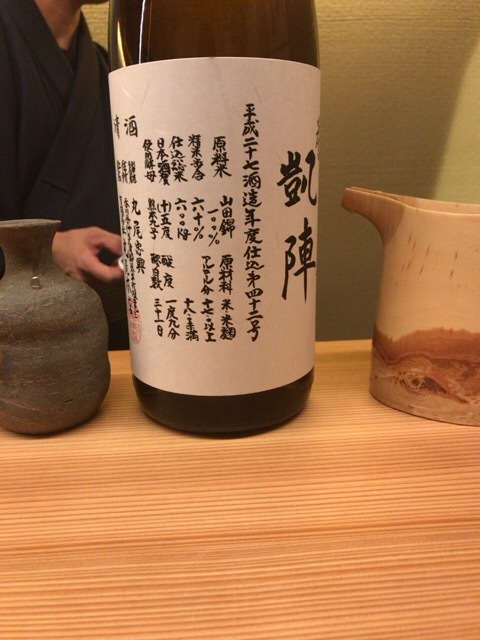 凱陣
平成二十七酒造年度仕込第四十二号
原料米 山田錦 一〇〇% 原材料 米 米麹
精米歩合 六十% アルコール分 十七・以上 十八・未満
仕込総米 六〇〇kg
日本酒度 十五度 酸度 一度九分
使用酵母 熊本九号 醪日数 三十一日
清酒
丸尾忠興